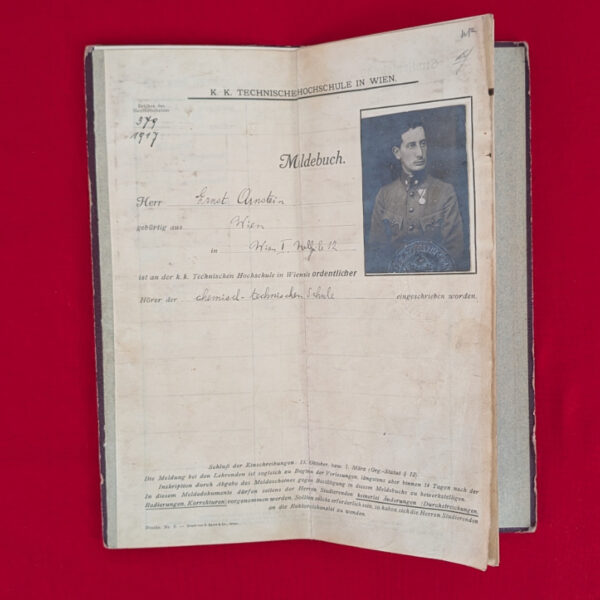 K. K. TECHNISCHE HOCHSCHULE IN WIEN.
379
1917
Meldebuch.
Herr Ernst Arnstein
gebürtig aus Wien
in Wien I.
ist an der k.k. Technischen Hochschule in Wien als ordentlicher
Hörer der chemisch-technischen Schule eingeschrieben worden.
Schluß der Einschreibungen: 15. Oktober, bzw. 1. März (Org.-Statut § 12)
Die Meldung bei den Lehrenden ist sogleich zu Beginn der Vorlesungen, längstens aber binnen 14 Tagen nach der
Inskription durch Abgabe des Meldescheines gegen Bestätigung in diesem Meldebuche zu bewerkstelligen.
In diesem Meldedokumente dürfen seitens der Herren Studierenden keinerlei Änderungen (Durchstreichungen,
Radierungen, Korrekturen) vorgenommen werden. Sollten solche erforderlich sein, so haben sich die Herren Studierenden
an die Rektoratskanzlei zu wenden.